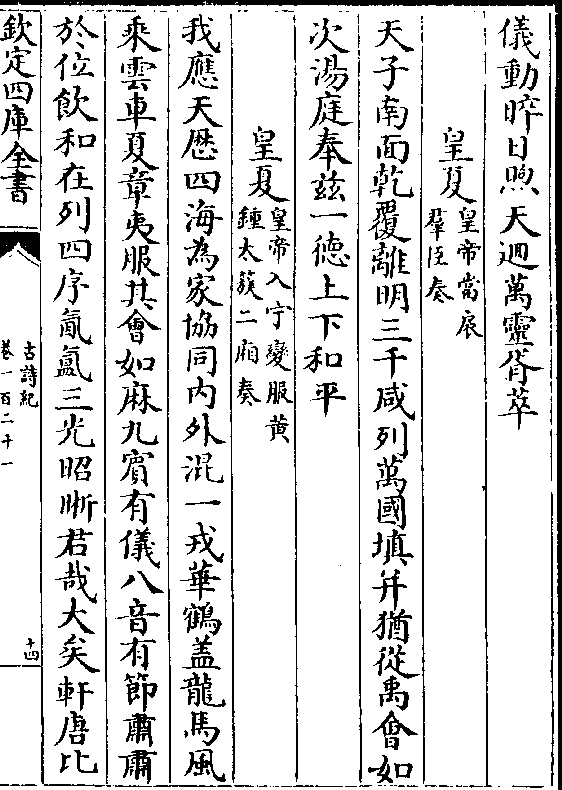 儀動晬日煦天迴萬靈胥萃
皇夏皇帝當扆羣臣奏
天子南面乾覆離明三千咸列萬國填并猶從禹會如
次湯庭奉兹一德上下和平
皇夏皇帝入宁變服黄鍾太蔟二廂奏
我應天歴四海為家協同内外混一戎華鶴蓋龍馬風
乘雲車夏章夷服其會如麻九賓有儀八音有節肅肅
於位飲和在列四序氤氲三光昭晰君哉大矣軒唐比
欽定四庫全書
古詩紀
卷一百二十一
十四